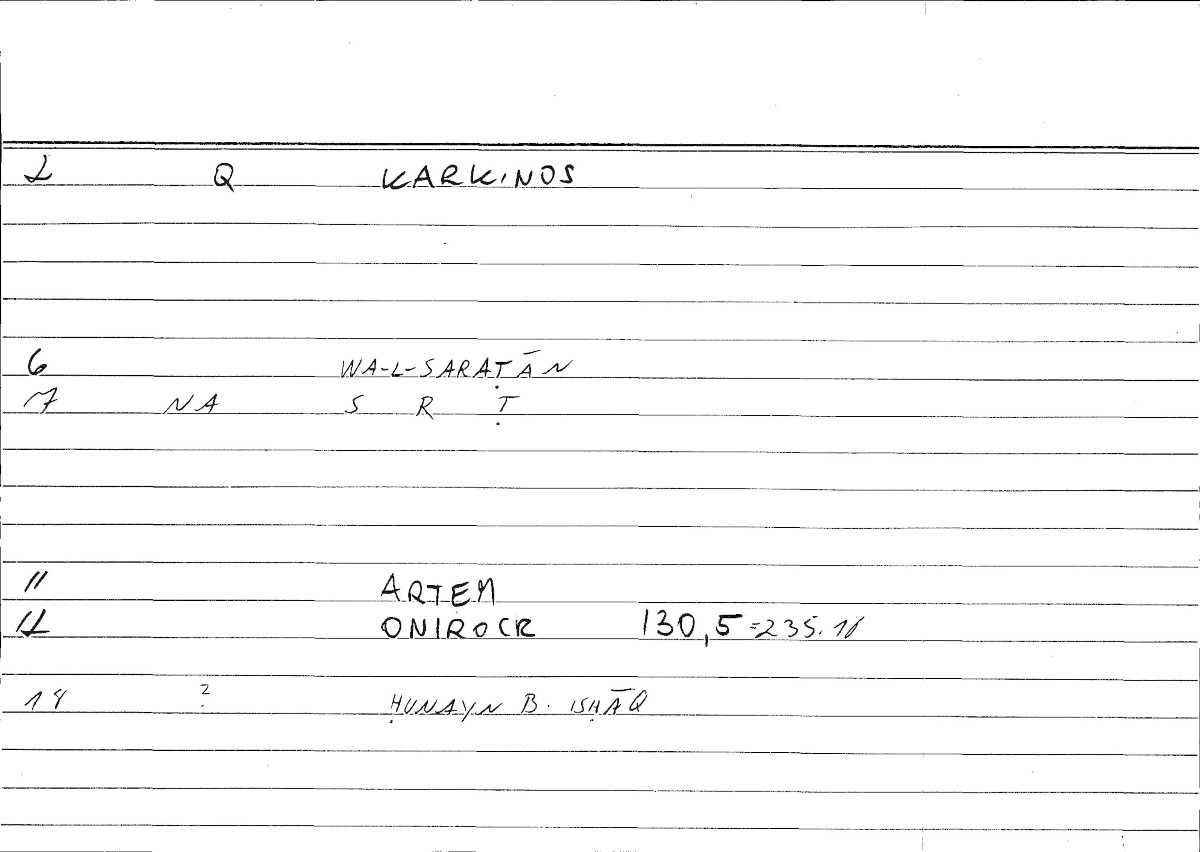 2 Q KARKINOS
6 WA-L-SARAṬĀN
7 NA S R Ṭ
11 ARTEM
12 ONIROCR 130,5=235.16
18 ? ḤUNAYN B. ISḤĀQ